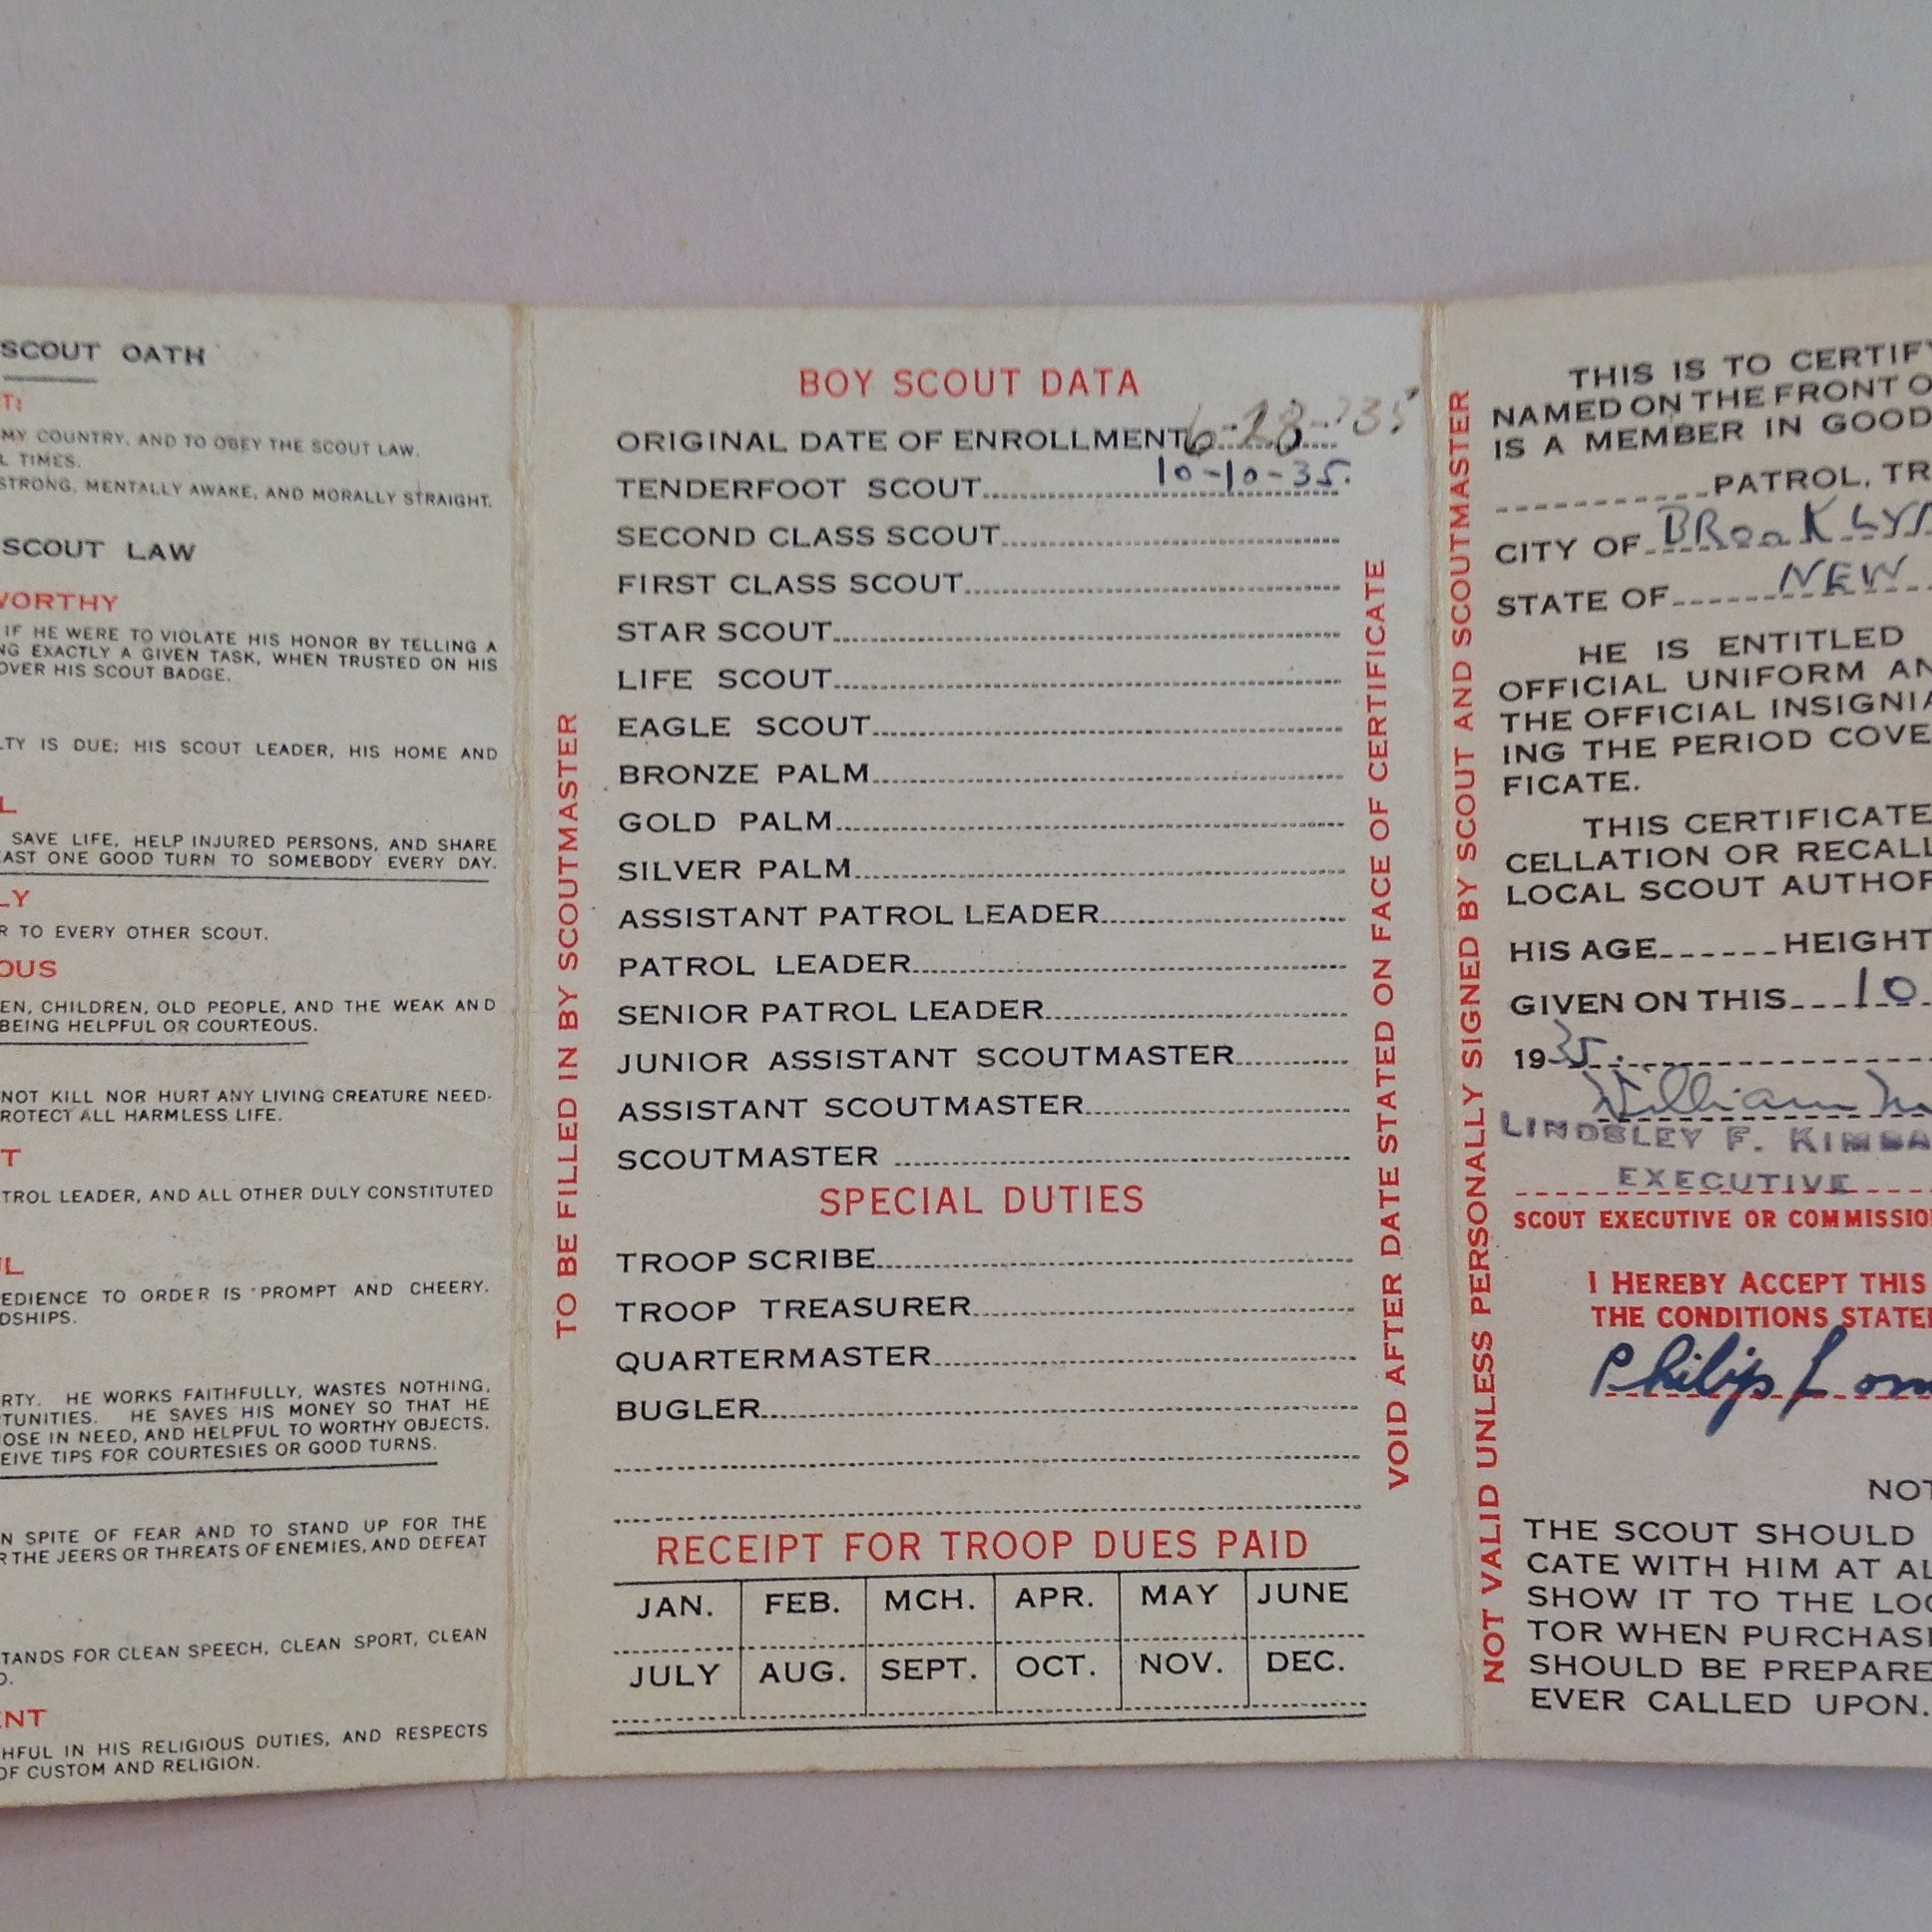 SCOUT OATH
MY COUNTRY, AND TO OBEY THE SCOUT LAW.
L TIMES.
STRONG, MENTALLY AWAKE, AND MORALLY STRAIGHT.
SCOUT LAW
WORTHY
IF HE WERE TO VIOLATE HIS HONOR BY TELLING A
NG EXACTLY A GIVEN TASK, WHEN TRUSTED ON HIS
OVER HIS SCOUT BADGE.
LTY IS DUE; HIS SCOUT LEADER, HIS HOME AND
L
SAVE LIFE, HELP INJURED PERSONS, AND SHARE
EAST ONE GOOD TURN TO SOMEBODY EVERY DAY.
LY
R TO EVERY OTHER SCOUT.
OUS
EN, CHILDREN, OLD PEOPLE, AND THE WEAK AND
BEING HELPFUL OR COURTEOUS.
NOT KILL NOR HURT ANY LIVING CREATURE NEED-
ROTECT ALL HARMLESS LIFE.
T
TROL LEADER, AND ALL OTHER DULY CONSTITUTED
UL
EDIENCE TO ORDER IS PROMPT AND CHEERY.
DSHIPS.
RTY. HE WORKS FAITHFULLY, WASTES NOTHING,
TUNITIES. HE SAVES HIS MONEY SO THAT HE
OSE IN NEED, AND HELPFUL TO WORTHY OBJECTS.
EIVE TIPS FOR COURTESIES OR GOOD TURNS.
N SPITE OF FEAR AND TO STAND UP FOR THE
R THE JEERS OR THREATS OF ENEMIES, AND DEFEAT
TANDS FOR CLEAN SPEECH, CLEAN SPORT, CLEAN
D.
ENT
HFUL IN HIS RELIGIOUS DUTIES, AND RESPECTS
OF CUSTOM AND RELIGION.
TO BE FILLED IN BY SCOUTMASTER
BOY SCOUT DATA
ORIGINAL DATE OF ENROLLMENT 6-28-'35
TENDERFOOT SCOUT 10-10-35.
SECOND CLASS SCOUT
FIRST CLASS SCOUT
STAR SCOUT
LIFE SCOUT
EAGLE SCOUT
BRONZE PALM
GOLD PALM
SILVER PALM
ASSISTANT PATROL LEADER
PATROL LEADER
SENIOR PATROL LEADER
JUNIOR ASSISTANT SCOUTMASTER
ASSISTANT SCOUTMASTER
SCOUTMASTER
SPECIAL DUTIES
TROOP SCRIBE
TROOP TREASURER
QUARTERMASTER
BUGLER
RECEIPT FOR TROOP DUES PAID
JAN. FEB. MCH. APR. MAY JUNE
JULY AUG. SEPT. OCT. NOV. DEC.
VOID AFTER DATE STATED ON FACE OF CERTIFICATE
NOT VALID UNLESS PERSONALLY SIGNED BY SCOUT AND SCOUTMASTER
THIS IS TO CERTIFY
NAMED ON THE FRONT O
IS A MEMBER IN GOOD
PATROL, TR
CITY OF BRooKLYN
STATE OF NEW
HE IS ENTITLED
OFFICIAL UNIFORM AN
THE OFFICIAL INSIGNIA
ING THE PERIOD COVE
FICATE.
THIS CERTIFICATE
CELLATION OR RECALL
LOCAL SCOUT AUTHOR
HIS AGE HEIGHT
GIVEN ON THIS 10
1935.
William
LINDSLEY F. KIMBA
EXECUTIVE
SCOUT EXECUTIVE OR COMMISSIO
I HEREBY ACCEPT THIS
THE CONDITIONS STATE
Philip Lom
NOT
THE SCOUT SHOULD
CATE WITH HIM AT AL
SHOW IT TO THE LOC
TOR WHEN PURCHASI
SHOULD BE PREPARE
EVER CALLED UPON.